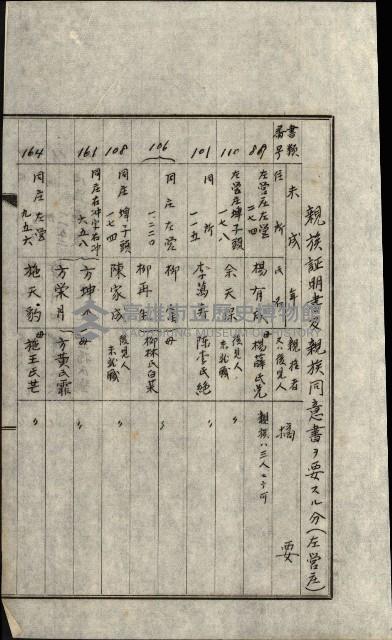 親族証明書及親族同意書ヲ要スル分(左營庄)
書類番号 住所 未成年者氏名 親権者又ハ後見人 摘要
89 左營庄左營 二七四 楊有 母 楊薛氏 親族ハ三人ニテ可
110 左營庄埤子頭 一八八 余天 後見人 未就職 〃
101 同所 一一五 李萬 母 陳李氏純 〃
106 同庄左營 一二二〇 柳 母 柳林氏白菜 〃
柳再生
108 同庄埤子頭 一七四 陳家成 後見人 未就職 〃
161 同庄右冲字右冲 六五八 方坤 母 方黄氏霏 〃
方榮月
164 同庄左營 九五六 施天豹 母 施王氏 〃
高雄市立歷史博物館